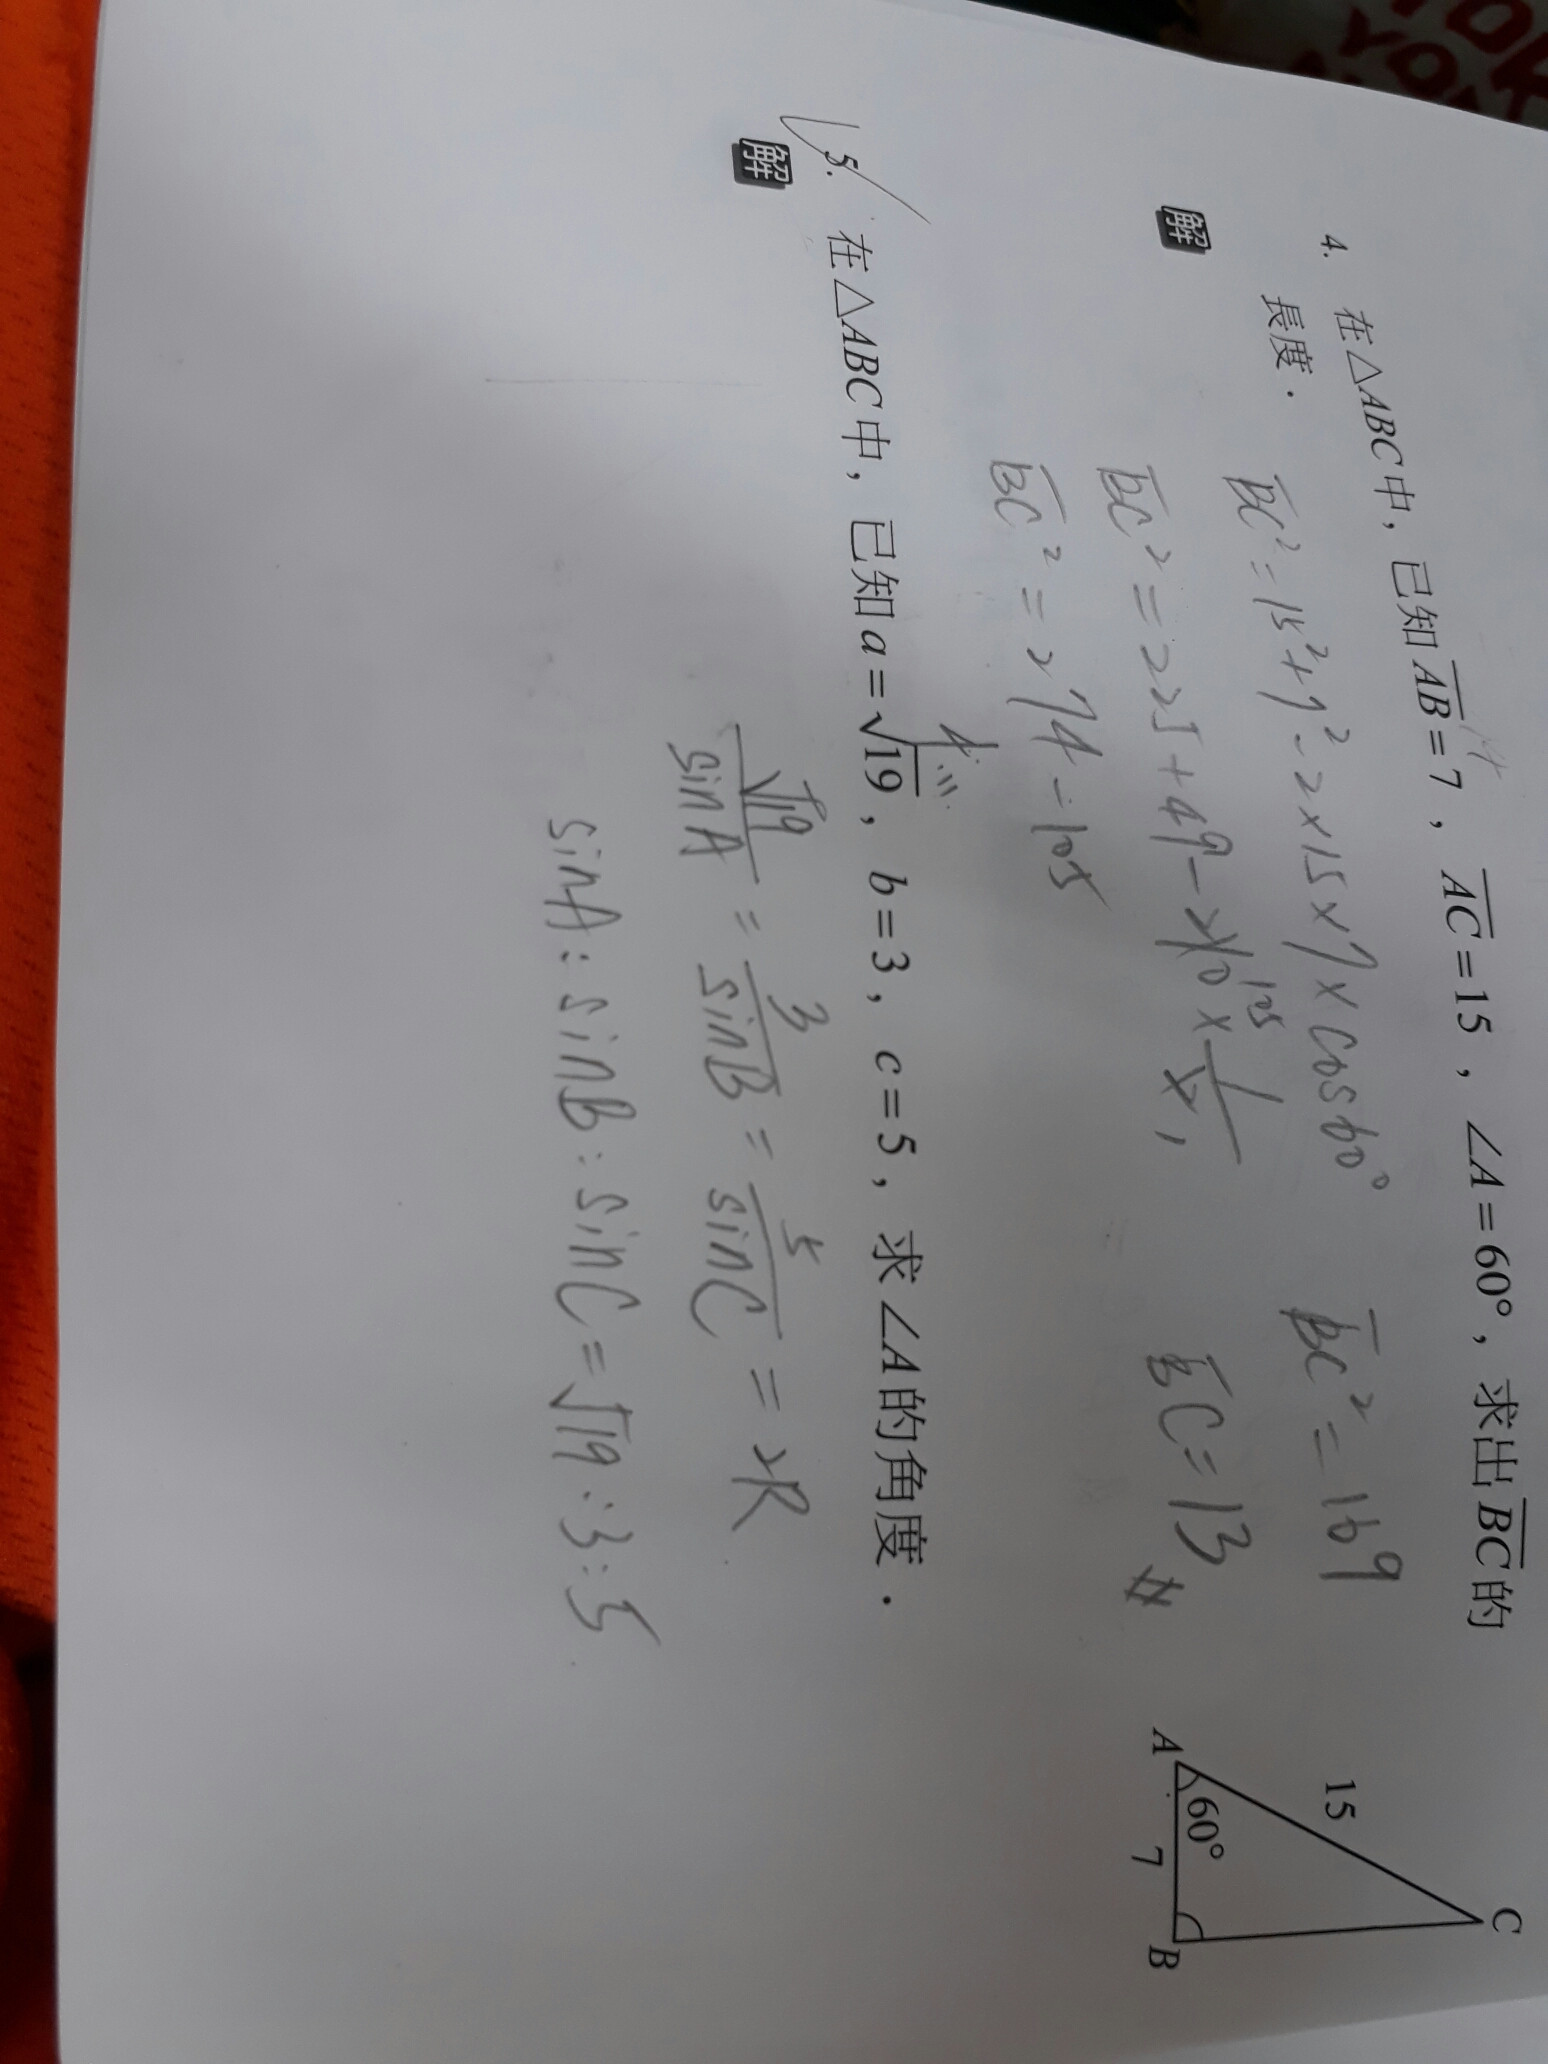 4. 在△ABC中，已知AB=7，AC=15，∠A=60°，求出BC的
長度．
解
BC²=15²+7²-2×15×7×cos60°
BC²=225+49-210×1/2
105
1
BC²=274-105
BC²=169
BC=13
#
C
15
60°
A
7
B
5. 在△ABC中，已知a=√19，b=3，c=5，求∠A的角度．
4....
解
√19/sinA=3/sinB=5/sinC=2R
sinA:sinB:sinC=√19:3:5